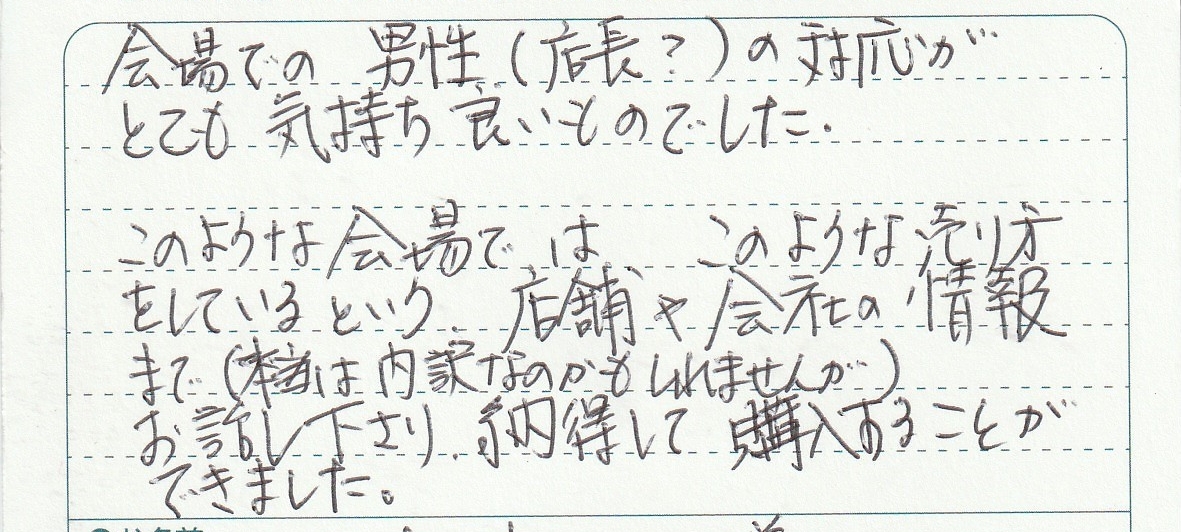 会場での 男性(店長?)の対応が
とても 気持ち良いものでした.
このような会場で は このような売り方
をしているという、店舗や会社の情報
まで(本当は内訳なのかもしれませんが)
お話し下さり、納得して購入することが
できました。